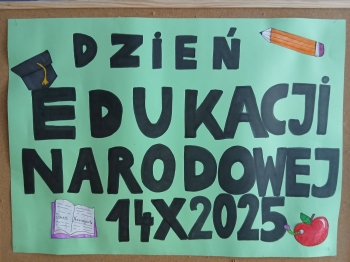 DZIEŃ
EDUKACJI
NARODOWEJ
14X2025